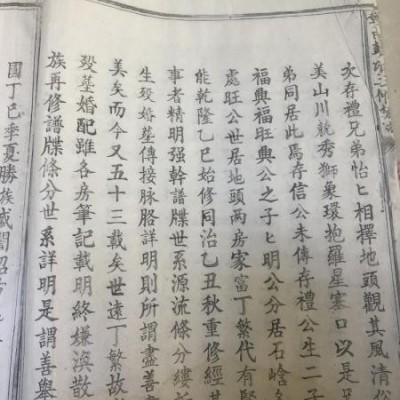 次存禮兄弟怡匕相擇地頭觀其風清俗
美山川競秀獅象環抱羅星塞口以是兄
弟同居此焉存信公未傳存禮公生二子
福興福旺興公之子匕明公分居石崡
處旺公世居地頭兩房家富丁繁代有賢
能乾隆乙巳始修同治乙丑秋重修經其
事者精明强幹譜牒世系源流條分縷
生殁婚墓傳接脉胳詳明則所謂盡善
美矣而今又五十三載矣世遠丁繁故
殁墓婚配雖各房筆記載明終嫌渙散
族再修譜牒條分世系詳明是謂善舉
國丁巳季夏勝族威閣